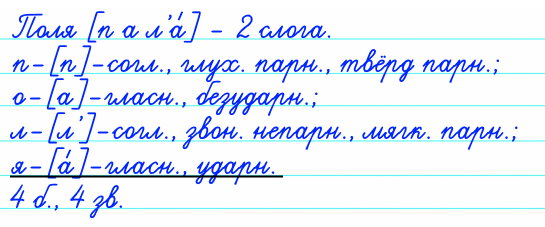 Поля [п а л’а́] – 2 слога.
п – [п] – согл., глух. парн., твёрд парн.;
о – [а] – гласн., безударн.;
л – [л’] – согл., звон. непарн., мягк. парн.;
я – [а́] – гласн., ударн.
4 б., 4 зв.